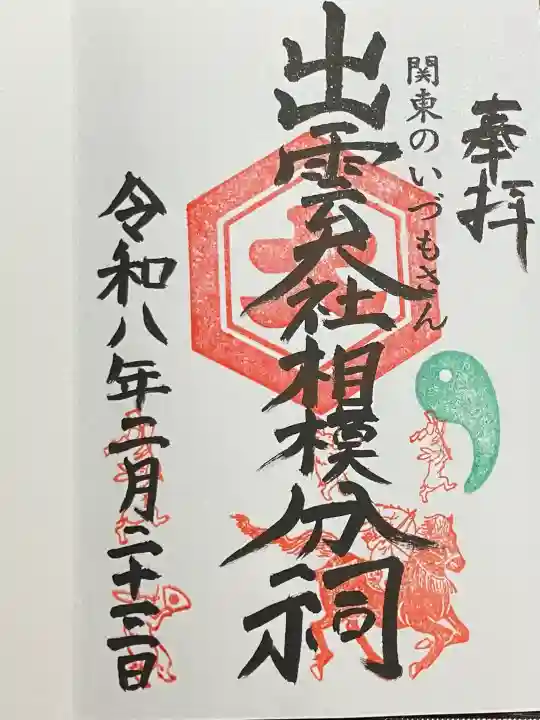 奉拝
関東のいづもさん
出雲大社相模分祠
令和八年二月二十三日